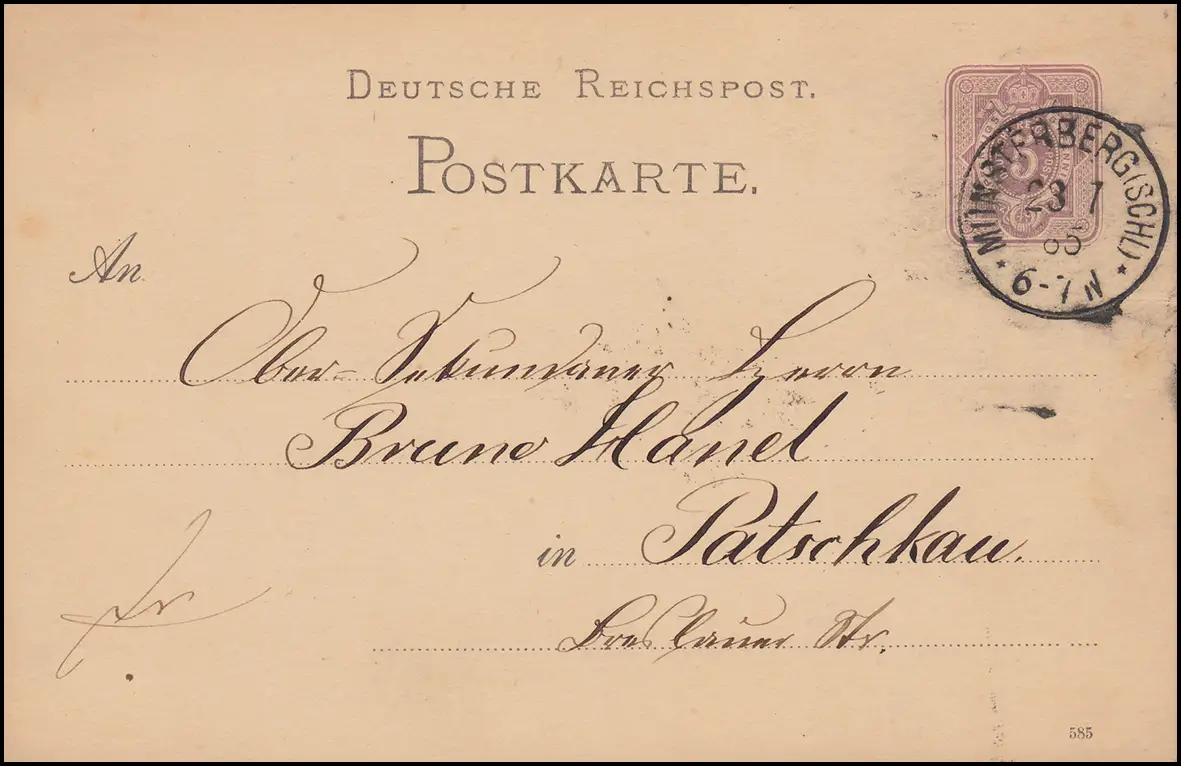 DEUTSCHE REICHSPOST.
POSTKARTE.
MÜNSTERBERG (SCHL)
23 7
85
6-7 N
An
Ober-Sekundaner Herrn
Bruno Hanel
in Patschkau.
Breslauer Str.
585